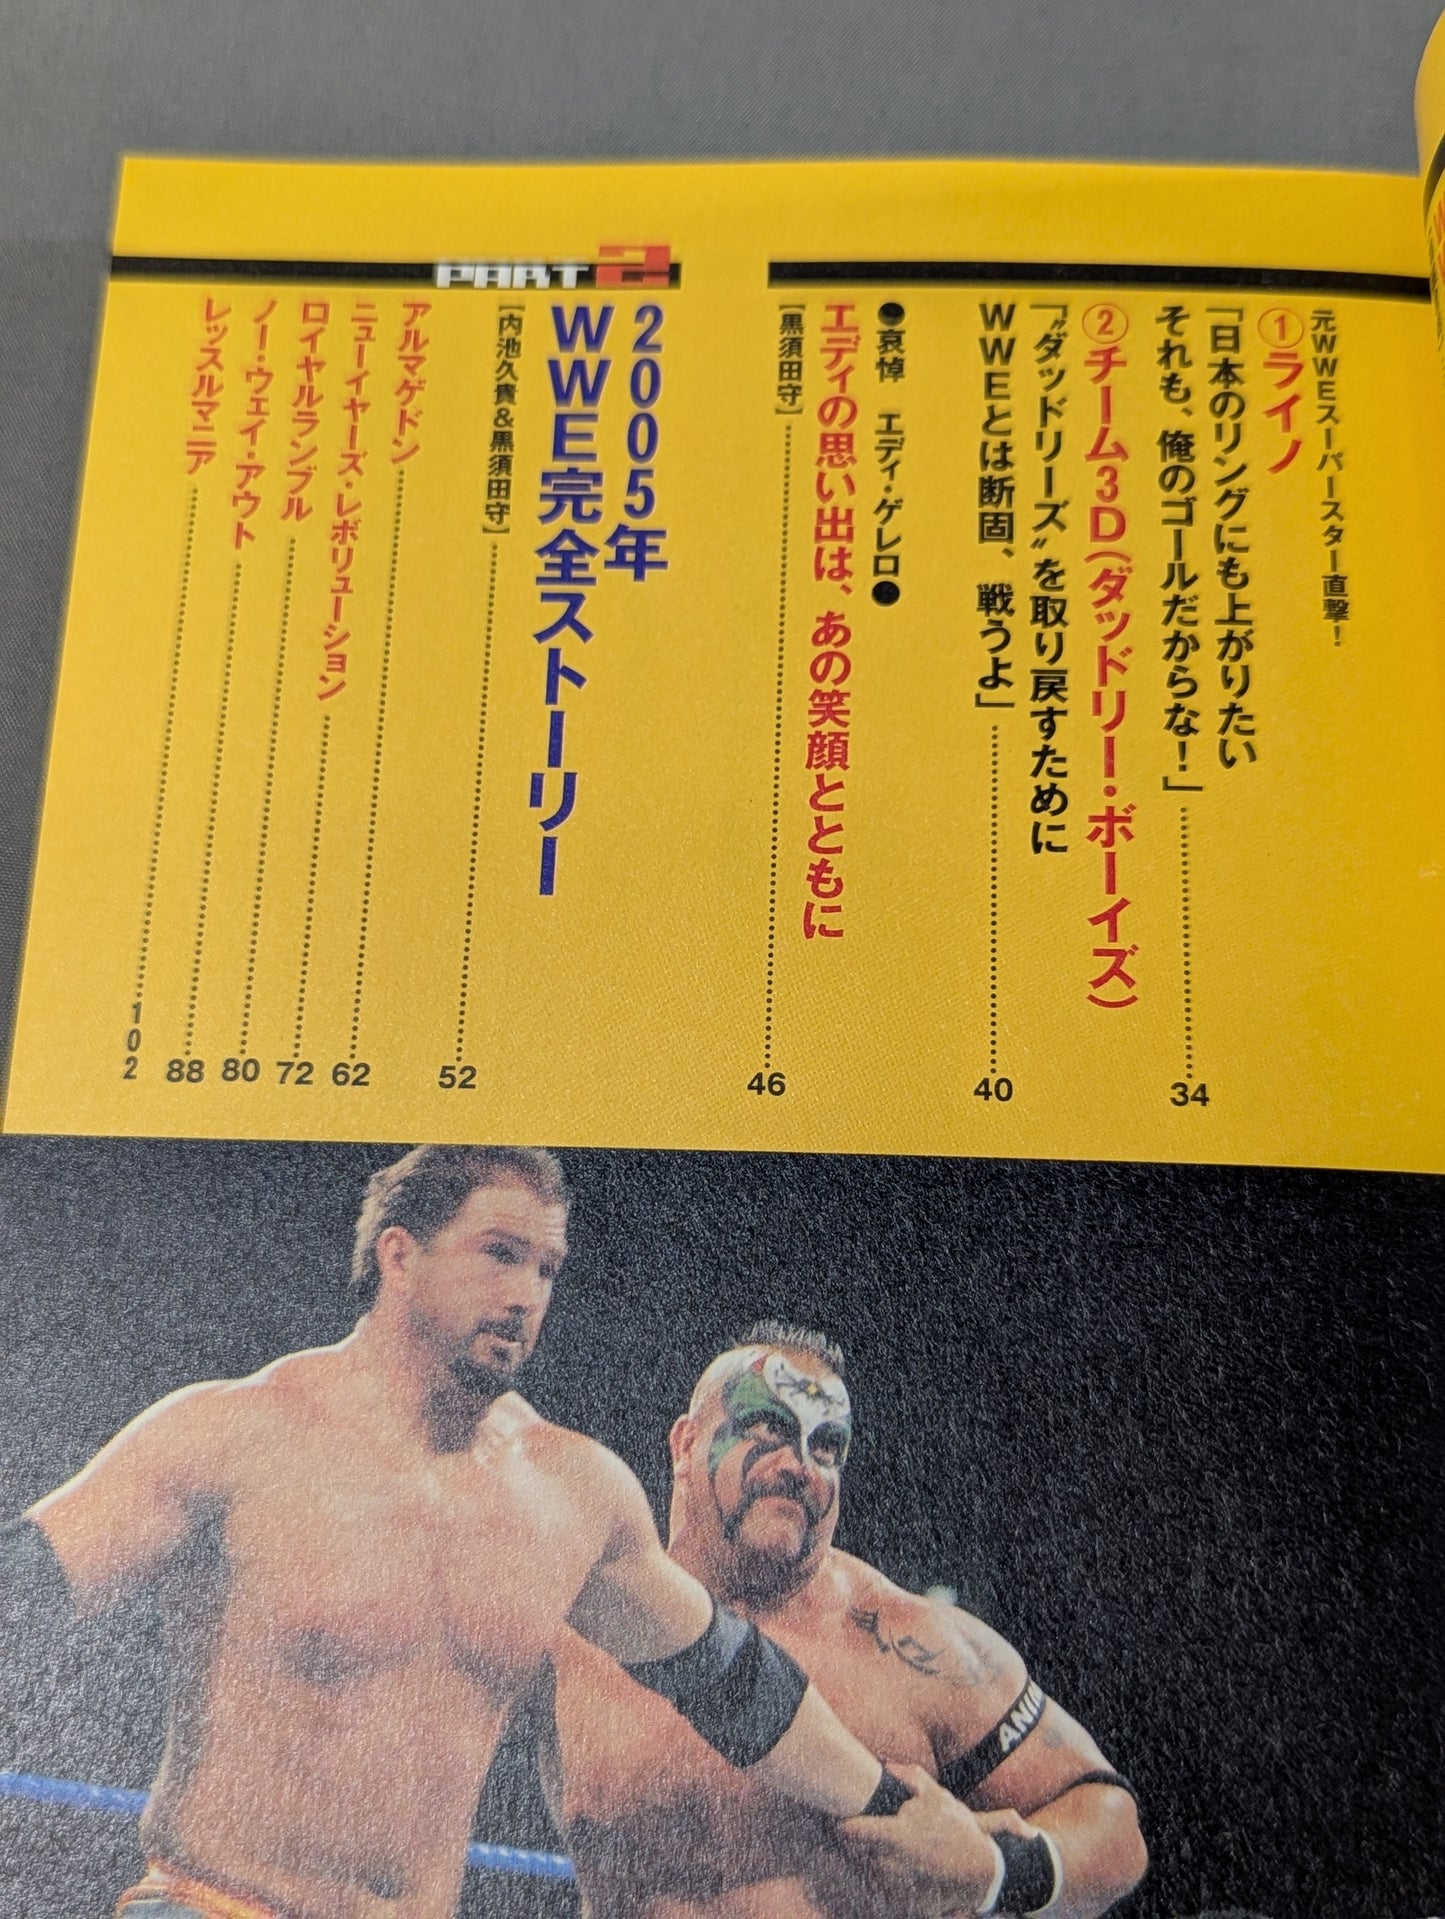 元WWEスーパースター直撃！
①ライノ
「日本のリングにも上がりたい
それも、俺のゴールだからな！」
34
②チーム3D(ダッドリー・ボーイズ)
「〝ダッドリーズ〟を取り戻すために
WWEとは断固、戦うよ」
40
●哀悼 エディ・ゲレロ●
エディの思い出は、あの笑顔とともに
[黒須田守]
46
PART2
2005年
WWE完全ストーリー
[内池久貴&黒須田守]
52
アルマゲドン
62
ニューイヤーズ・レボリューション
72
ロイヤルランブル
80
ノー・ウェイ・アウト
88
レッスルマニア
102
ANIM